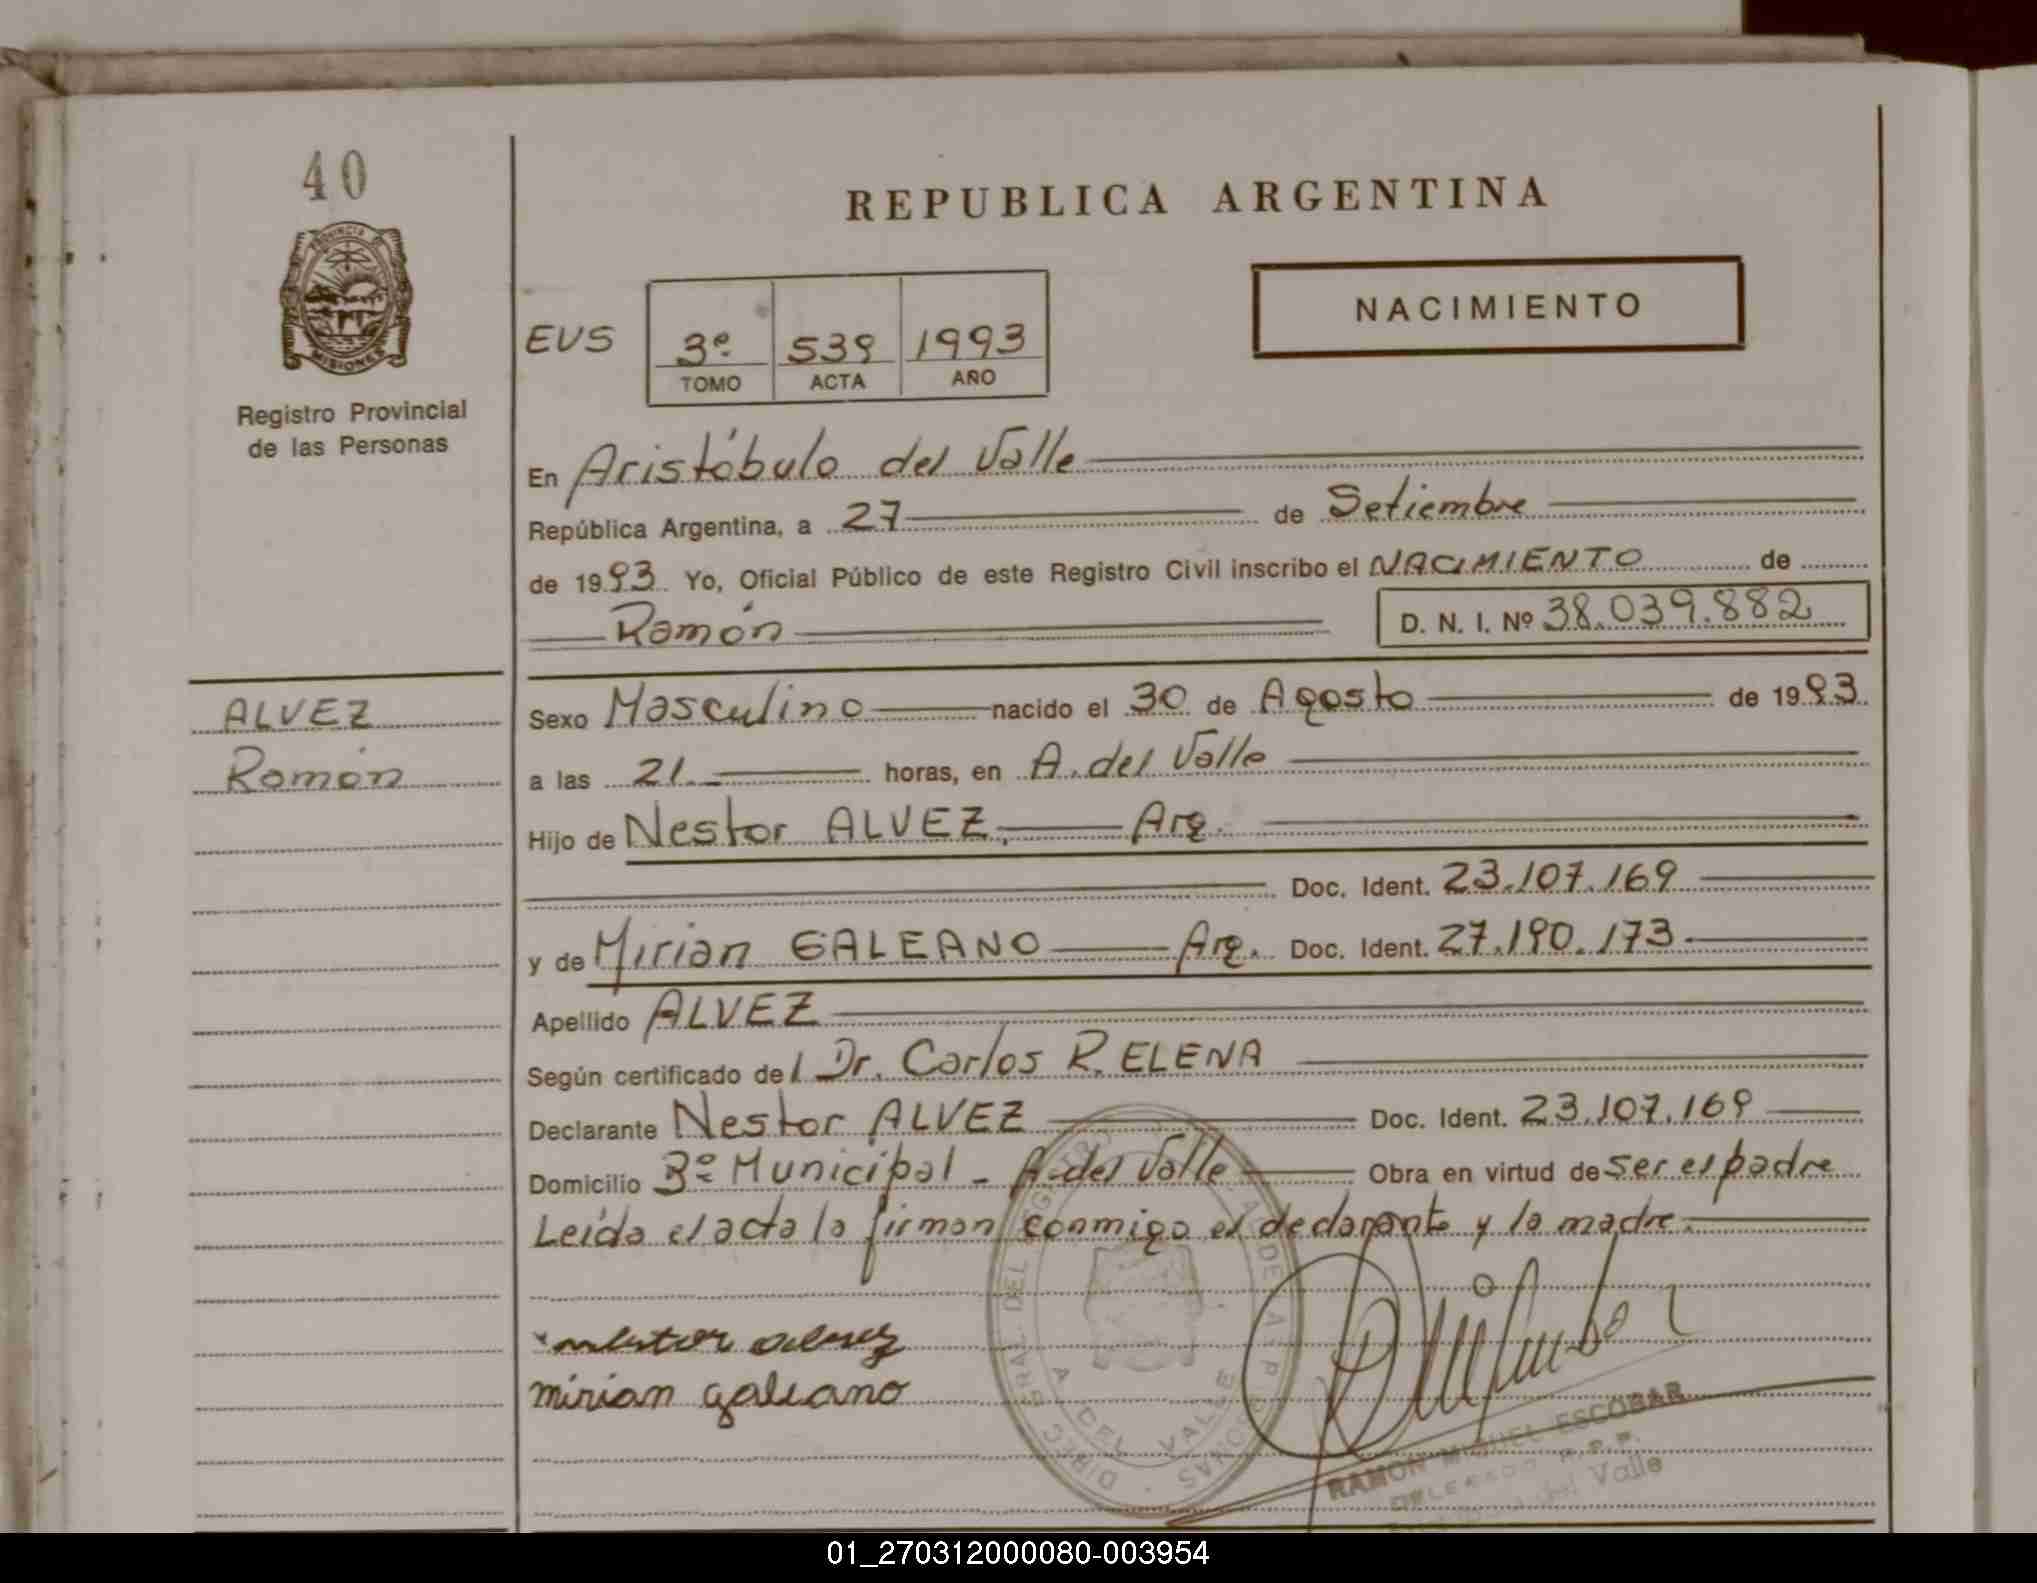 40
PROVINCIA DE
MISIONES
Registro Provincial
de las Personas
REPUBLICA ARGENTINA
NACIMIENTO
EVS
3º 539 1993
TOMO ACTA AÑO
En Aristóbulo del Valle
República Argentina, a 27 de Setiembre
de 1993 Yo, Oficial Público de este Registro Civil inscribo el NACIMIENTO de
Ramón D. N. I. Nº 38.039.882
ALVEZ
Ramón
Sexo Masculino nacido el 30 de Agosto de 1993
a las 21. horas, en A. del Valle
Hijo de Nestor ALVEZ, Arg.
Doc. Ident. 23.107.169
y de Mirian GALEANO Arg. Doc. Ident. 27.190.173
Apellido ALVEZ
Según certificado del Dr. Carlos R. ELENA
Declarante Nestor ALVEZ Doc. Ident. 23.107.169
Domicilio Bº Municipal - A. del Valle Obra en virtud de ser el padre
Leída el acta la firman conmigo el declarante y la madre.
nestor alvez
mirian galeano
A DEL VALLE
RAMON MIGUEL ESCOBAR
DELEGADO R.P.P.
del Valle
01_270312000080-003954